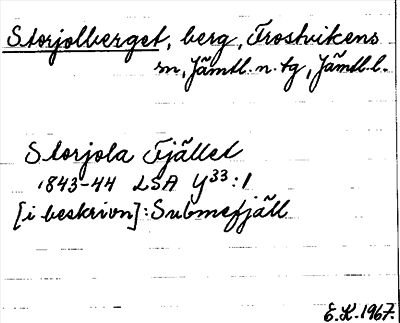 Storjolberget, berg, Frostvikens
sn, Jämtl. n. tg, Jämtl. l.
Storjola Fjället
1843-44 LSA Y33:1
[i beskrivn]: Submefjäll
E.K. 1967.